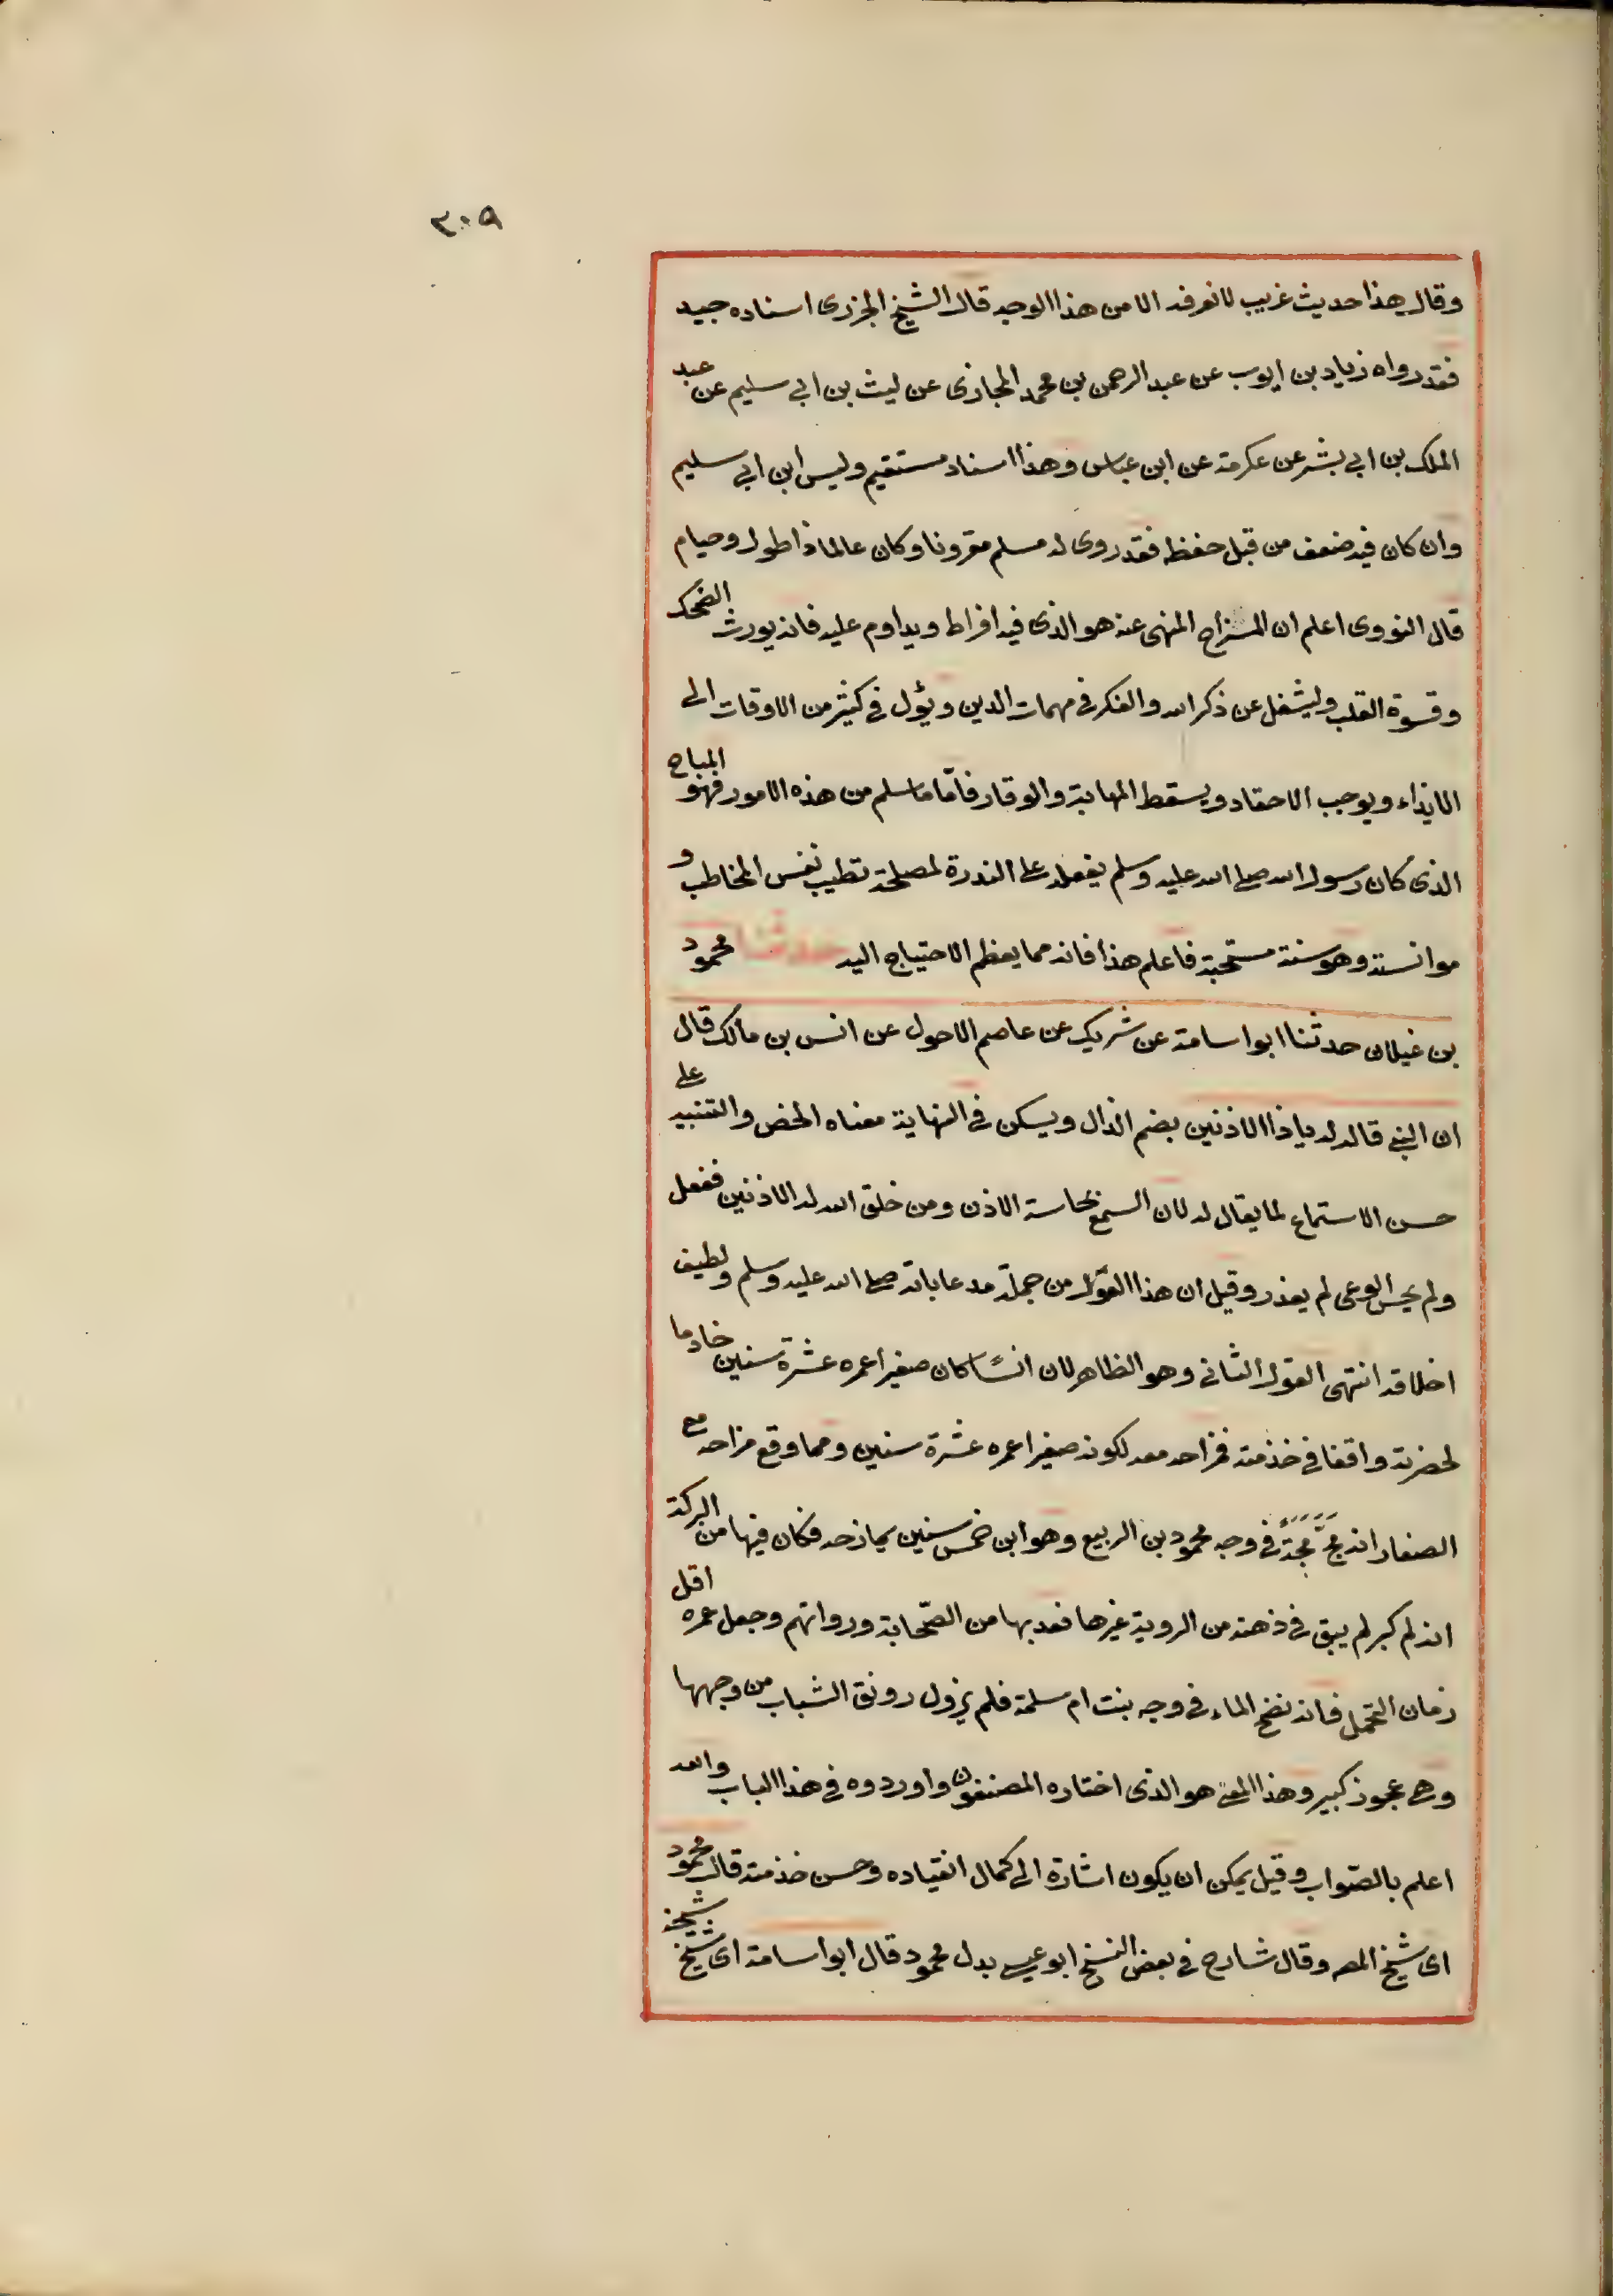 ٣٠٩
وقال هذا حديث غريب لا نعرفه الا من هذا الوجه قال الشيخ الجزرى اسناده جيد
فقد رواه زياد بن ايوب عن عبد الرحمن بن محمد المحاربى عن ليث بن ابي سليم عن عبد
الملك بن ابي بشر عن عكرمة عن ابن عباس وهذا اسناد مستقيم وليس ابن ابي سليم
وان كان فيه ضعف من قبل حفظه فقد روى له مسلم مقرونا وكان عالما ذا طول وصيام
قال النووى اعلم ان المزاح المنهى عنه هو الذى فيه افراط ويداوم عليه فانه يورث الضحك
وقسوة القلب وليشغل عن ذكر الله والفكر فى مهمات الدين ويؤل فى كثير من الاوقات الى
الايذاء ويوجب الاحقاد ويسقط المهابة والوقار فامّا ما سلم من هذه الامور فهو المباح
الذى كان رسول الله صلى الله عليه وسلم يفعله على الندرة لمصلحة تطيب نفس المخاطب و
موانسته وهو سنة مستحبة فاعلم هذا فانه مما يعظم الاحتياج اليه حدثنا محمود
بن غيلان حدثنا ابو اسامة عن شريك عن عاصم الاحول عن انس بن مالك قال
ان النبى قال له يا ذا الاذنين بضم الذال ويسكن فى النهاية معناه الحض والتنبيه على
حسن الاستماع لما يقال له لان السمع بحاسة الاذن ومن خلق الله له الاذنين فغفل
ولم يحسن الوعى لم يعذر وقيل ان هذا القول من جملة مدعاباته صلى الله عليه وسلم ولطيف
اخلاقه انتهى القول الثانى وهو الظاهر لان انسًا كان صغيرا عمره عشرة سنين خادما
لحضرته واقفا فى خدمته فمزاحه معه لكونه صغيرا عمره عشرة سنين ومما وقع مزاحه مع
الصغار انه مجّ مجّةً فى وجه محمود بن الربيع وهو ابن خمس سنين يمازحه فكان فيها من البركة
انه لم كبر لم يبق فى ذهنه من الروية غيرها فعد بها من الصّحابة ورواتهم وجعل عمره اقل
زمان التحمل فانه نضح الماء فى وجه بنت ام سلمة فلم يزول رونق الشباب من وجهها
وهى عجوز كبير وهذا المعنى هو الذى اختاره المصنفون واوردوه فى هذا الباب والله
اعلم بالصّواب وقيل يمكن ان يكون اشارة الى كمال انقياده وحسن خدمته قال محمود
اى شيخ المصـ وقال شارح فى بعض النسخ ابو عيسى بدل محمود قال ابو اسامة اى شيخ شيخه